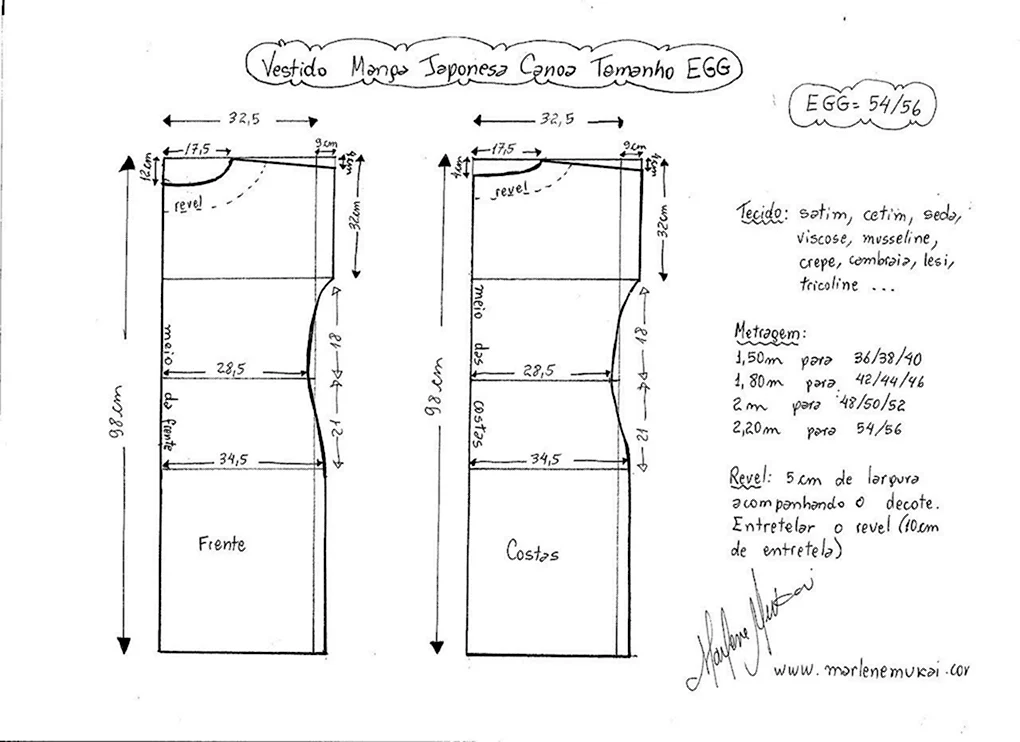 Vestido Manga Japonesa Canoa Tamanho EGG
EGG = 54/56
32,5
17,5
9cm
12cm
4cm
revel
32cm
98cm
meio da frente
18
28,5
21
34,5
Frente
32,5
17,5
9cm
4cm
4cm
revel
32cm
98cm
meio das costas
18
28,5
21
34,5
Costas
Tecido: satim, cetim, seda,
viscose, musseline,
crepe, cambraia, lesi,
tricoline ...
Metragem:
1,50m para 36/38/40
1,80m para 42/44/46
2m para 48/50/52
2,20m para 54/56
Revel: 5cm de largura
acompanhando o decote.
Entretelar o revel (10cm
de entretela)
Marlene Mukai
www.marlenemukai.com